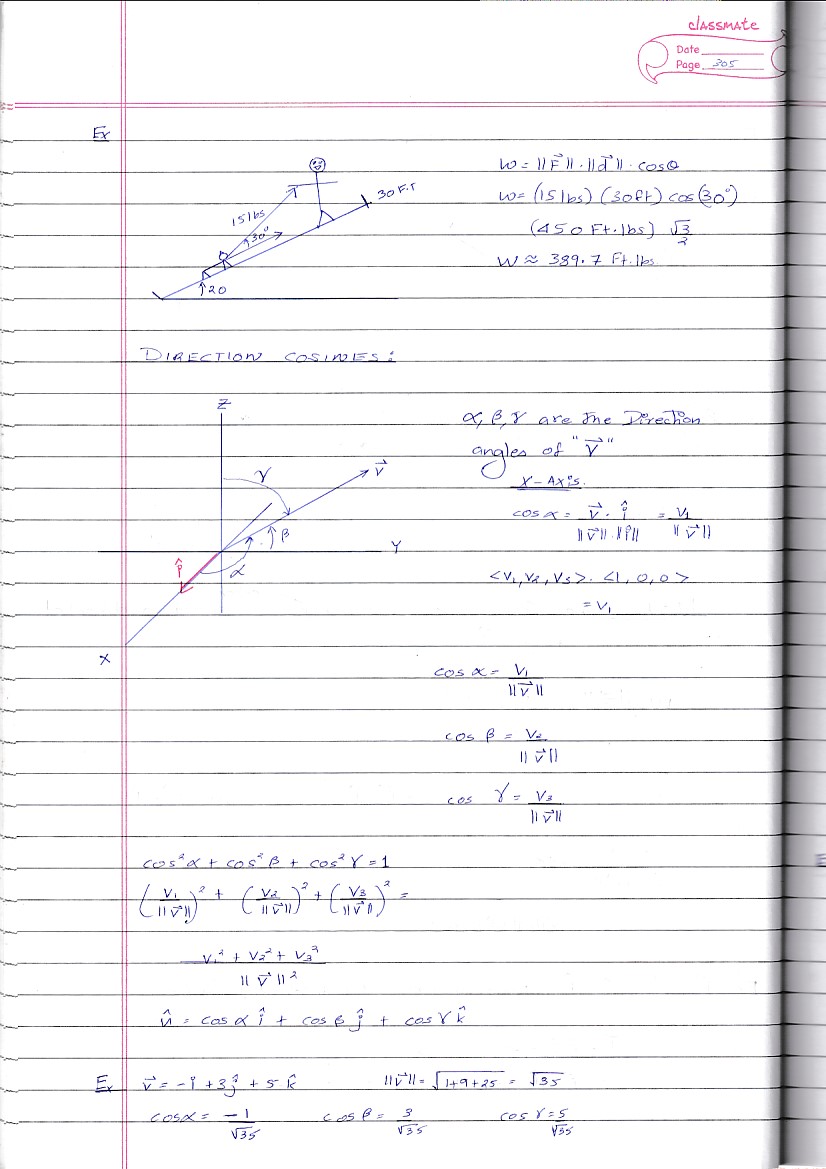 classmate
Date
Page 305
Ex
15 lbs
30°
30 F.T
20
W = ||F⃗|| · ||d⃗|| · cosθ
W = (15 lbs) (30ft) cos(30°)
(450 Ft.lbs) √3/2
W ≈ 389.7 Ft.lbs
DIRECTION COSINES:
Z
γ
v⃗
β
Y
î
α
X
α, β, γ are the Direction
angles of "V⃗"
X-Axis.
cos α = v⃗ · î / ||v⃗|| · ||î|| = V₁ / ||v⃗||
<V₁, V₂, V₃> · <1, 0, 0>
= V₁
cos α = V₁ / ||v⃗||
cos β = V₂ / ||v⃗||
cos γ = V₃ / ||v⃗||
cos²α + cos²β + cos²γ = 1
(V₁ / ||v⃗||)² + (V₂ / ||v⃗||)² + (V₃ / ||v⃗||)² =
V₁² + V₂² + V₃² / ||v⃗||²
û = cos α î + cos β ĵ + cos γ k̂
Ex v⃗ = -î + 3ĵ + 5k̂ ||v⃗|| = √1+9+25 = √35
cosα = -1/√35 cosβ = 3/√35 cosγ = 5/√35